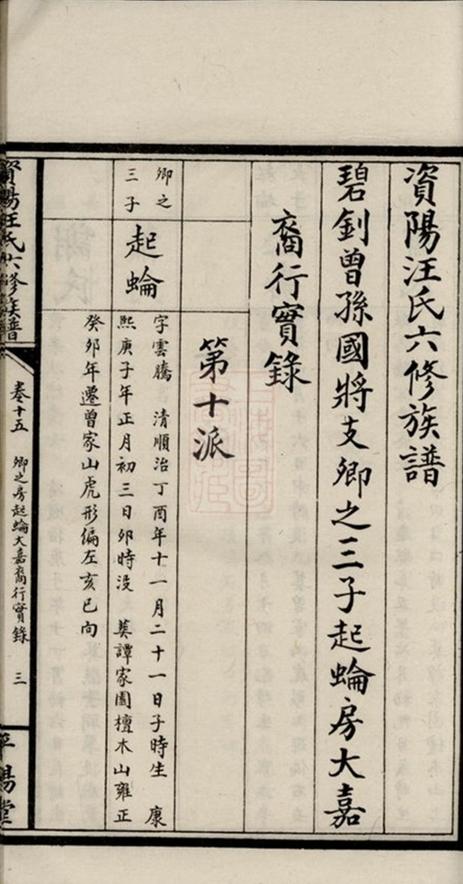 資陽汪氏六修族譜
碧釗曾孫國將支卿之三子起蜦房大嘉
裔行實錄
第十派
卿之
三子
起蜦
字雲騰 清順治丁酉年十一月二十一日子時生 康
熙庚子年正月初三日卯時沒 葬譚家園檀木山雍正
癸卯年遷曾家山虎形偏左亥巳向
資陽汪氏六修族譜
卷十五 卿之房起蜦大嘉裔行實錄 三
平陽堂